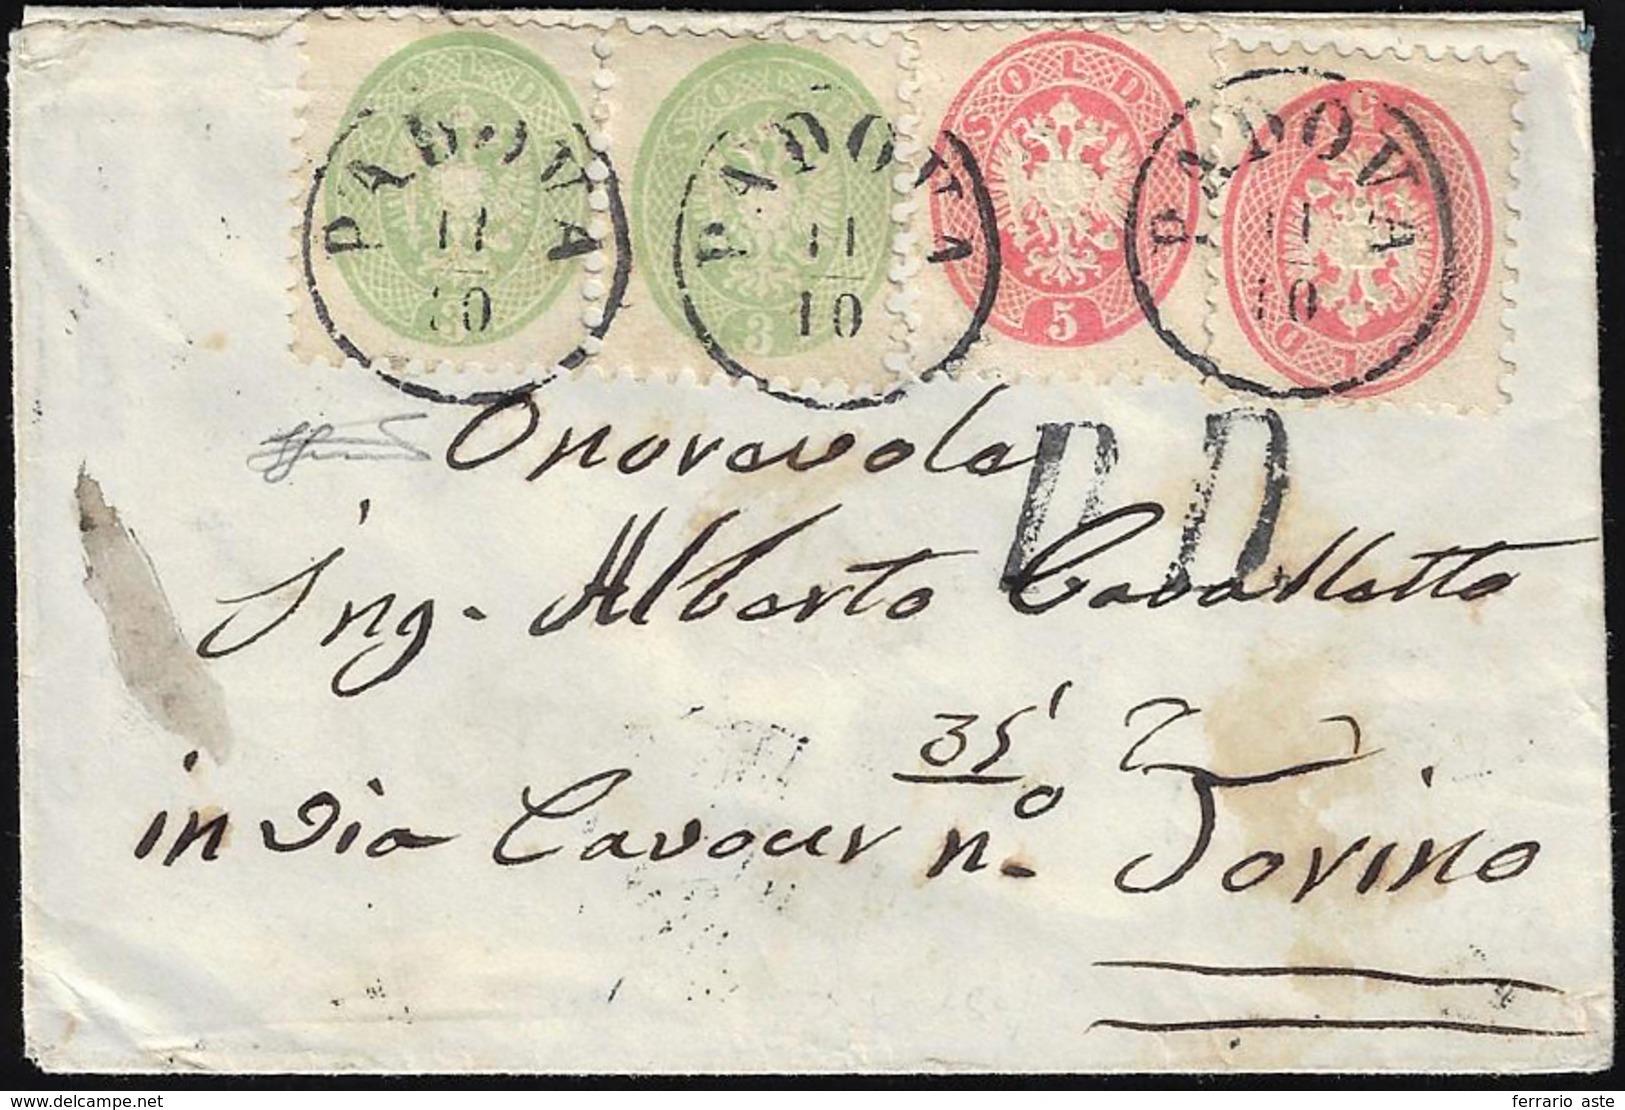 SOLDI SOLDI SOLDI SOLDI
3 3 5
PADOVA PADOVA PADOVA
11 11 11
10 10 10
P.D.
Onorevole
Ing. Alberto Cavalletto
in via Cavour nº 35
Torino
ferrario aste